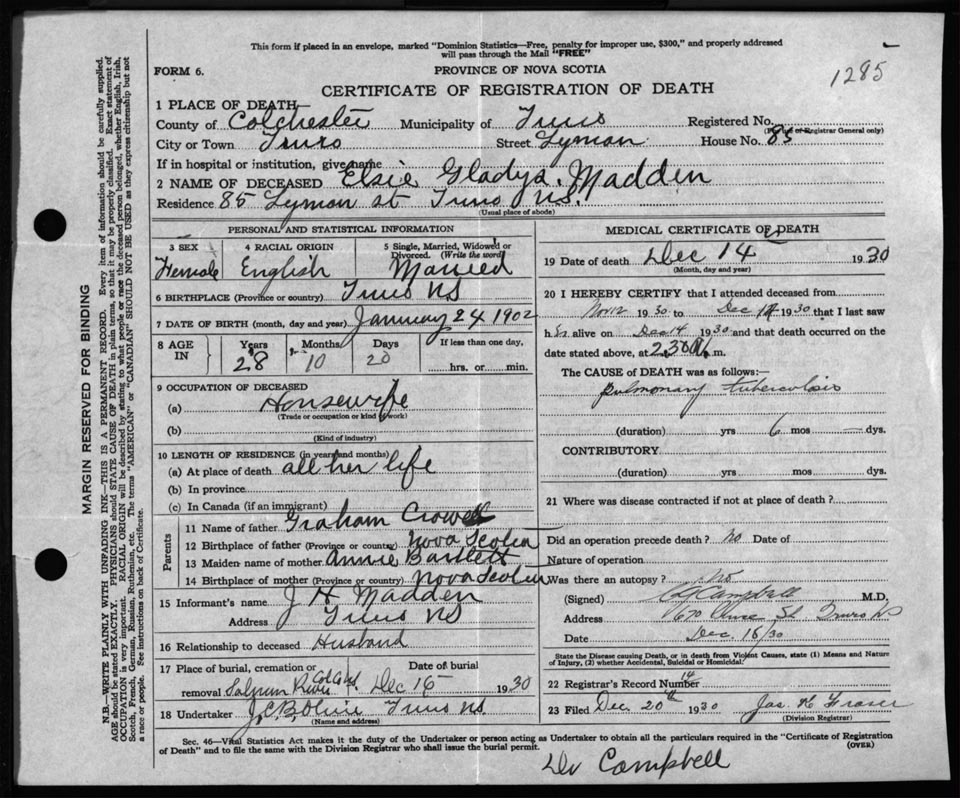 This form if placed in an envelope, marked "Dominion Statistics—Free, penalty for improper use, $300," and properly addressed
will pass through the Mail "FREE"
1285
FORM 6.
PROVINCE OF NOVA SCOTIA
CERTIFICATE OF REGISTRATION OF DEATH
1 PLACE OF DEATH—
County of Colchester Municipality of Truro Registered No.
(For use of Registrar General only)
City or Town Truro Street Lyman House No. 85
If in hospital or institution, give name
2 NAME OF DECEASED Elsie Gladys Madden
Residence 85 Lyman st Truro NS.
(Usual place of abode)
PERSONAL AND STATISTICAL INFORMATION
3 SEX Female
4 RACIAL ORIGIN English
5 Single, Married, Widowed or Divorced. (Write the word) Married
6 BIRTHPLACE (Province or country) Truro NS
7 DATE OF BIRTH (month, day and year) January 24 1902
8 AGE IN Years 28 Months 10 Days 20 If less than one day, hrs. or min.
9 OCCUPATION OF DECEASED
(a) Housewife
(Trade or occupation or kind of work)
(b)
(Kind of industry)
10 LENGTH OF RESIDENCE (in years and months)
(a) At place of death all her life
(b) In province
(c) In Canada (if an immigrant)
Parents
11 Name of father Graham Crowe
12 Birthplace of father (Province or country) Nova Scotia
13 Maiden name of mother Annie Bartlett
14 Birthplace of mother (Province or country) Nova Scotia
15 Informant's name J H Madden
Address Truro NS
16 Relationship to deceased Husband
17 Place of burial, cremation or removal Date of burial
Salmon River Dec 16 1930
18 Undertaker Truro NS
(Name and address)
MEDICAL CERTIFICATE OF DEATH
19 Date of death Dec 14 1930
(Month, day and year)
20 I HEREBY CERTIFY that I attended deceased from
Nov 12 1930 to Dec 14 1930 that I last saw
h er alive on Dec 14 1930 and that death occurred on
date stated above, at 2.30 m.
The CAUSE of DEATH was as follows:—
pulmonary tuberculosis
(duration) yrs 6 mos — dys.
CONTRIBUTORY
(duration) yrs mos dys.
21 Where was disease contracted if not at place of death?
Did an operation precede death? no Date of
Nature of operation
Was there an autopsy? No
(Signed) Campbell M.D.
Address St Truro NS
Date Dec. 16/30
State the Disease causing Death, or in death from Violent Causes, state (1) Means and Nature
of Injury, (2) whether Accidental, Suicidal or Homicidal.
22 Registrar's Record Number 14
23 Filed Dec 20th 1930 Jas H Fraser
(Division Registrar)
Sec. 46—Vital Statistics Act makes it the duty of the Undertaker or person acting as Undertaker to obtain all the particulars required in the "Certificate of Registration
of Death" and to file the same with the Division Registrar who shall issue the burial permit.
(OVER)
Dr Campbell
MARGIN RESERVED FOR BINDING
N.B.—WRITE PLAINLY WITH UNFADING INK—THIS IS A PERMANENT RECORD. Every item of information should be carefully supplied.
AGE should be stated EXACTLY. PHYSICIANS should STATE CAUSE OF DEATH in plain terms, so that it may be properly classified. Exact statement of
OCCUPATION is very important. RACIAL ORIGIN will be described by stating to what people or race the deceased person belonged, whether English, Irish,
Scotch, French, German, Russian, Ruthenian, etc. The terms "AMERICAN" or "CANADIAN" SHOULD NOT BE USED as they express citizenship but not
a race or people. See instructions on back of Certificate.